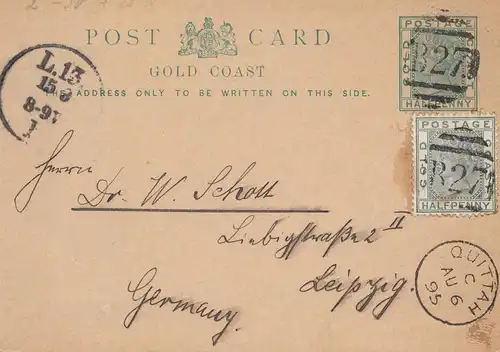 POST CARD
GOLD COAST
THE ADDRESS ONLY TO BE WRITTEN ON THIS SIDE.
POSTAGE
GOLD COAST
HALFPENNY
B27
L.13
15-8
8-9V
1
POSTAGE
GOLD COAST
HALFPENNY
B27
Herrn
Dr. W. Schott
Liebigstraße 2 II
Leipzig.
Germany.
QUITTAH
C
AU 6
95